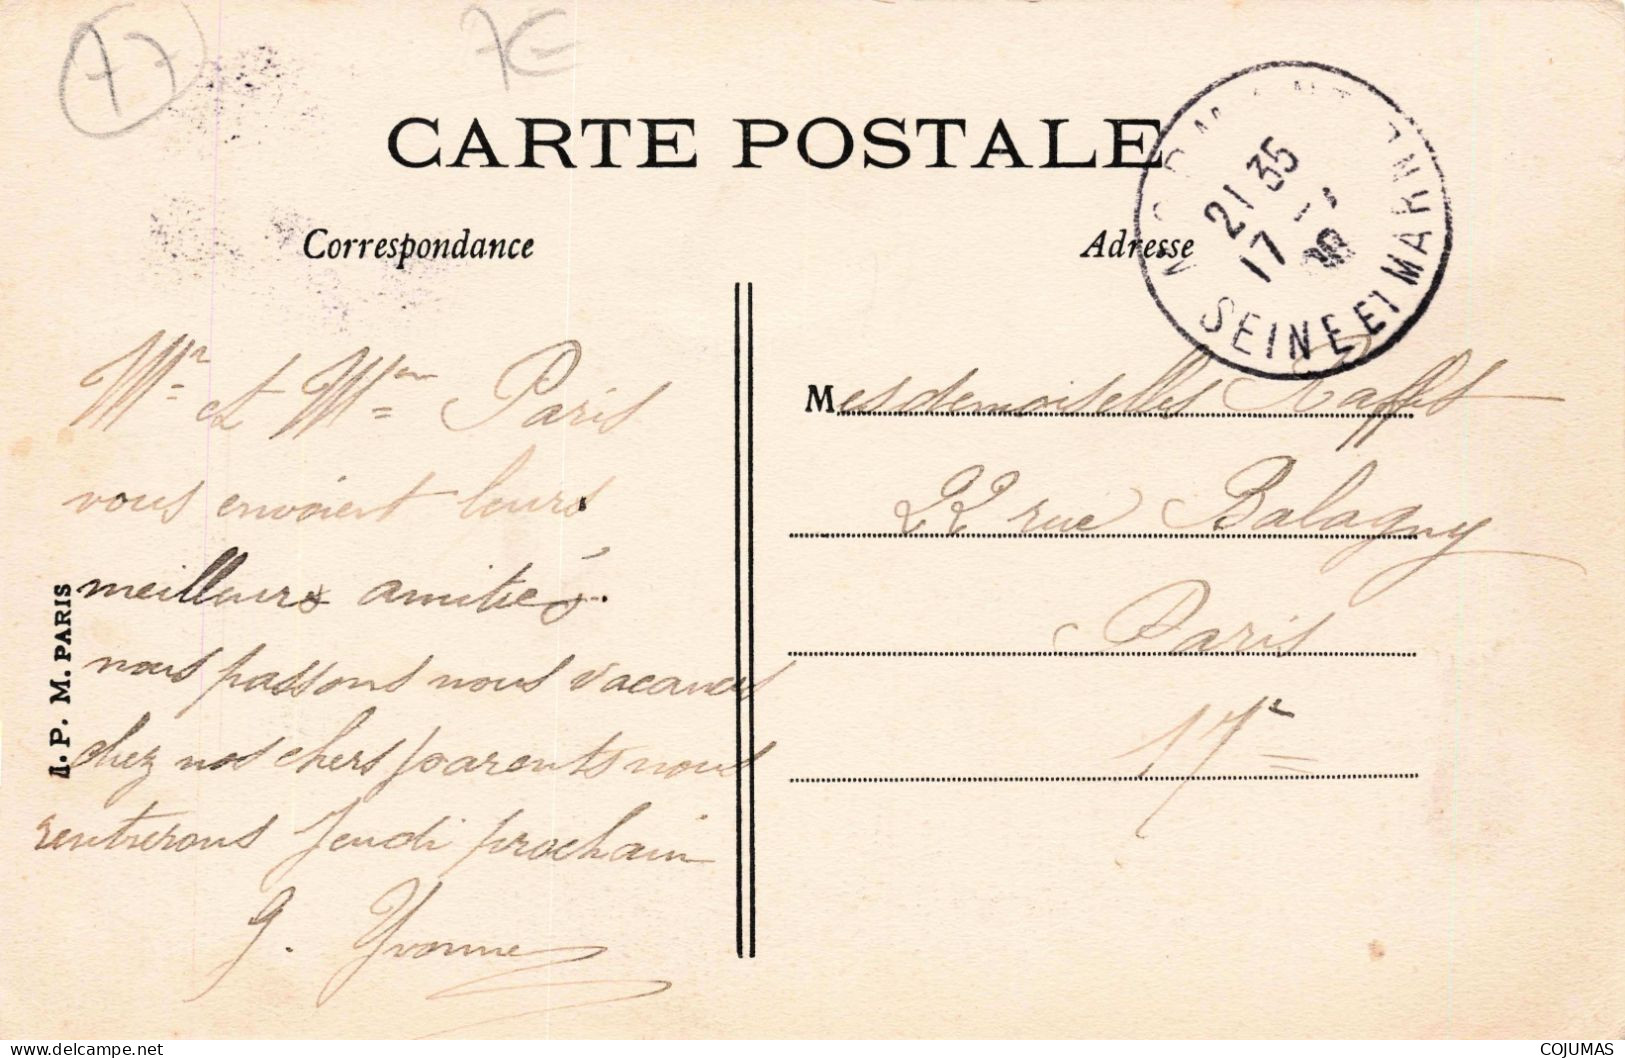 77
7€
CARTE POSTALE
Correspondance
Adresse
21 35
17
SEINE ET MARNE
Mr et Mme Paris
vous envoient leurs
meilleurs amitiés.
nous passons nous vacances
chez nos chers parents nous
rentrerons Jeudi prochain
G. Yvonne
Mesdemoiselles Raffet
22 rue Balagny
Paris
17e
A. P. M. PARIS
www.delcampe.net
COJUMAS